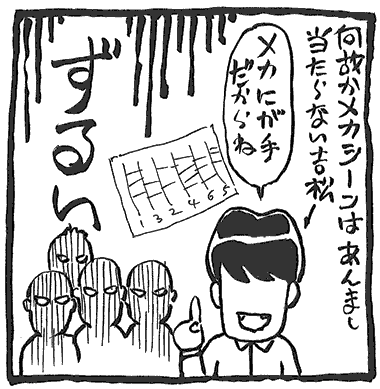 何故かメカシーンはあんまし
当たらない吉松
メカにが手
だからね
ずるい
1 3 2 4 6 5